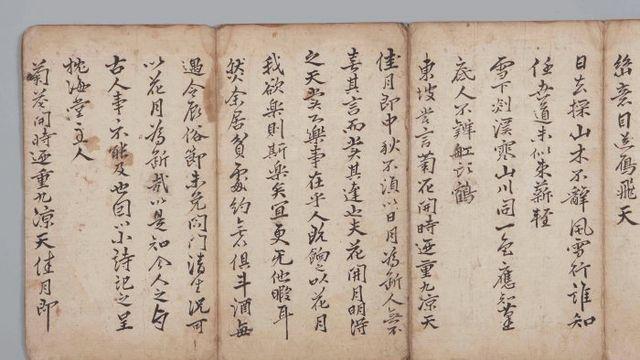 意日送鴈飛天
日去探山木不辭風雪行誰知
任吾道未似束薪輕
雪下剡溪寒山川同一色應知蓬
底人不辨缸頭鶴
東坡嘗言菊花開時迺重九凉天
佳月即中秋不須以日月為斷人無
喜其言而賞其達也夫花開月明得
之天賞心樂事在乎人既餉之以花月
我欲樂則斯樂矣宜更无他暇耳
然余居貧處約無俱斗酒每
遇令辰俗節未免閉門清坐況可
以花月為斷哉以是知今人之與
古人事不能及也因以小詩記之呈
枕海堂主人
菊花開時迺重九凉天佳月即